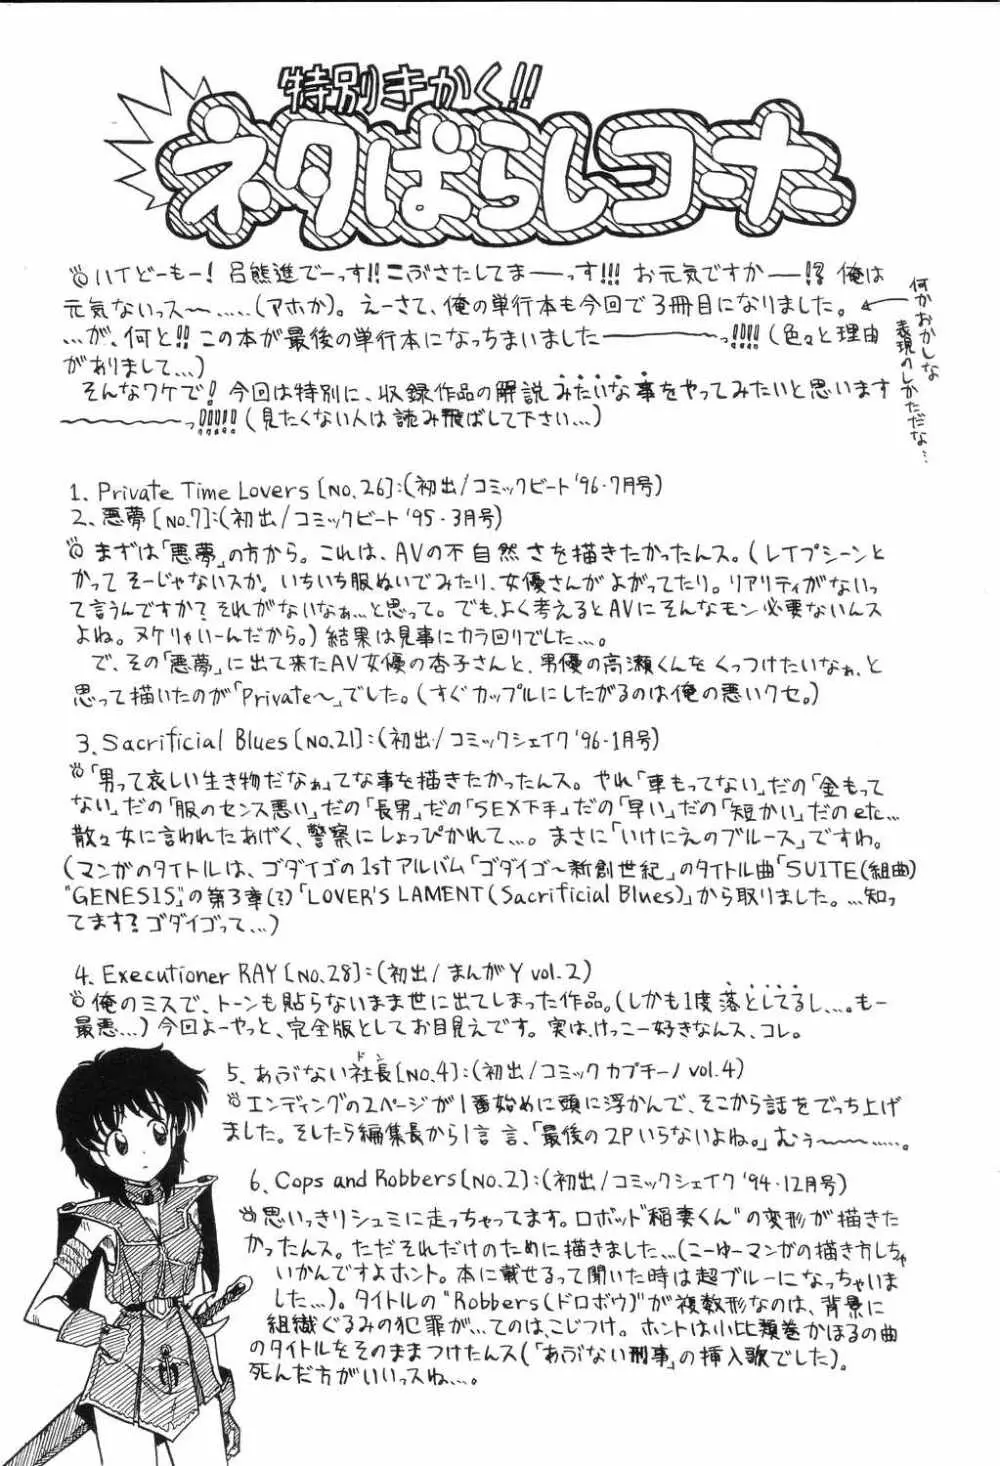 特別きかく!!
ネタばらしコーナー
ハイどーもー! 呂熊進でーっす!! ごぶさたしてまーーっす!!! お元気ですかー!? 俺は
元気ないっス〜……(アホか)。えーさて、俺の単行本も今回で3冊目になりました。
…が、何と!! この本が最後の単行本になっちまいました――――っ!!!! (色々と理由
がありまして…)
そんなワケで! 今回は特別に、収録作品の解説みたいな事をやってみたいと思います
〜〜〜〜っ!!!!! (見たくない人は読み飛ばして下さい…)
何かおかしな
表現のしかただな…
1. Private Time Lovers [NO.26]:(初出/コミックビート'96・7月号)
2. 悪夢 [NO.7]:(初出/コミックビート'95・3月号)
まずは「悪夢」の方から。これは、AVの不自然さを描きたかったんス。(レイプシーンと
かってそーじゃないスか。いちいち服ぬいでみたり、女優さんがよがってたり。リアリティがないっ
て言うんですか? それがないなぁ…と思って。でも、よく考えるとAVにそんなモン必要ないんス
よね。ヌケりゃいーんだから。) 結果は見事にカラ回りでした…。
で、その「悪夢」に出て来たAV女優の杏子さんと、男優の高瀬くんをくっつけたいなぁ、と
思って描いたのが「Private〜」でした。(すぐカップルにしたがるのは俺の悪いクセ。)
3. Sacrificial Blues [NO.21]:(初出/コミックシェイク'96・1月号)
「男って哀しい生き物だなぁ」てな事を描きたかったんス。やれ「車もってない」だの「金もって
ない」だの「服のセンス悪い」だの「長男」だの「SEX下手」だの「早い」だの「短かい」だのetc…
散々女に言われたあげく、警察にしょっぴかれて…。まさに「いけにえのブルース」ですわ。
(マンガのタイトルは、ゴダイゴの1stアルバム「ゴダイゴ〜新創世紀」のタイトル曲「SUITE(組曲)
"GENESIS"」の第3章(?)「LOVER'S LAMENT (Sacrificial Blues)」から取りました。…知っ
てます? ゴダイゴって…)
4. Executioner RAY [NO.28]:(初出/まんがY vol.2)
俺のミスで、トーンも貼らないまま世に出てしまった作品。(しかも1度落としてるし、…。もー
最悪…) 今回よーやっと、完全版としてお目見えです。実は、けっこー好きなんス、コレ。
5. あぶない社長(ドン) [NO.4]:(初出/コミックカプチーノ vol.4)
エンディングの2ページが1番始めに頭に浮かんで、そこから話をでっち上げ
ました。そしたら編集長から1言 言、「最後の2Pいらないよね。」むぅ〜〜……。
6. Cops and Robbers [NO.2]:(初出/コミックシェイク'94・12月号)
思いっきりシュミに走っちゃってます。ロボッド"稲妻くん"の変形が描きた
かったんス。ただそれだけのために描きました…(こーゆーマンガの描き方しちゃ
いかんですよホント。本に載せるって聞いた時は超ブルーになっちゃいま
した…)。タイトルの"Robbers(ドロボウ)"が複数形なのは、背景に
組織ぐるみの犯罪が…てのは、こじつけ。ホントは小比類巻かほるの曲
のタイトルをそのままつけたんス(「あぶない刑事」の挿入歌でした)。
死んだ方がいいっスね…。